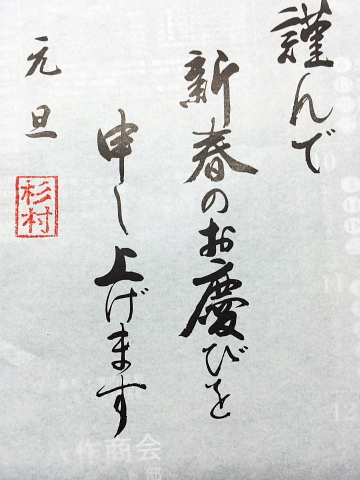 謹んで
新春のお慶びを
申し上げます
元旦
杉村
作商会